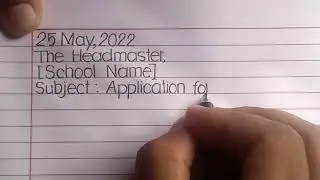 25 May, 2022
The Headmaster,
[School Name]
Subject : Application fo